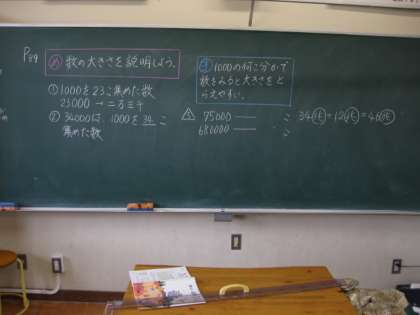 P89
め 数の大きさを説明しよう。
① 1000を23こ集めた数
23000 → 二万三千
② 34000は、1000を 34 こ
集めた数
ま 1000の何こ分かで
数をみると大きさをと
らえやすい。
75000 —— こ
680000 —— こ
34(千)+12(千)=46(千)